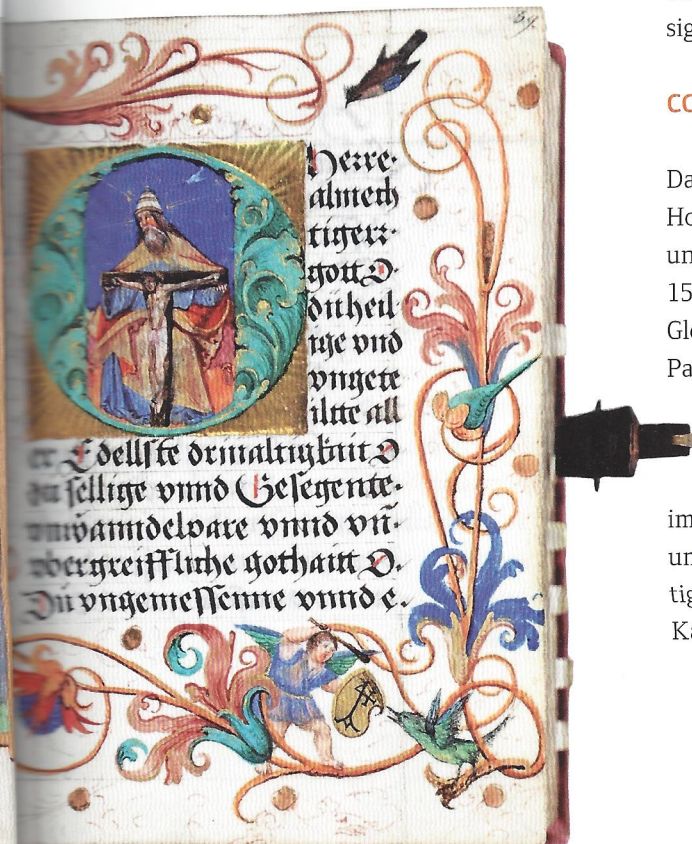 O herre-
almech
tigerr-
gott O-
du heil
ige vnd
vngete
iltte all
er Edellste driualtigknit O
du sellige vnnd Gesegente-
vnwanndelpare vnnd vn-
vbergreiffliche gothaitt O.
Du vngemessenne vnnd e.
sig
CO
Da
Ho
un
15
Gl
Pa
im
un
tig
Ka